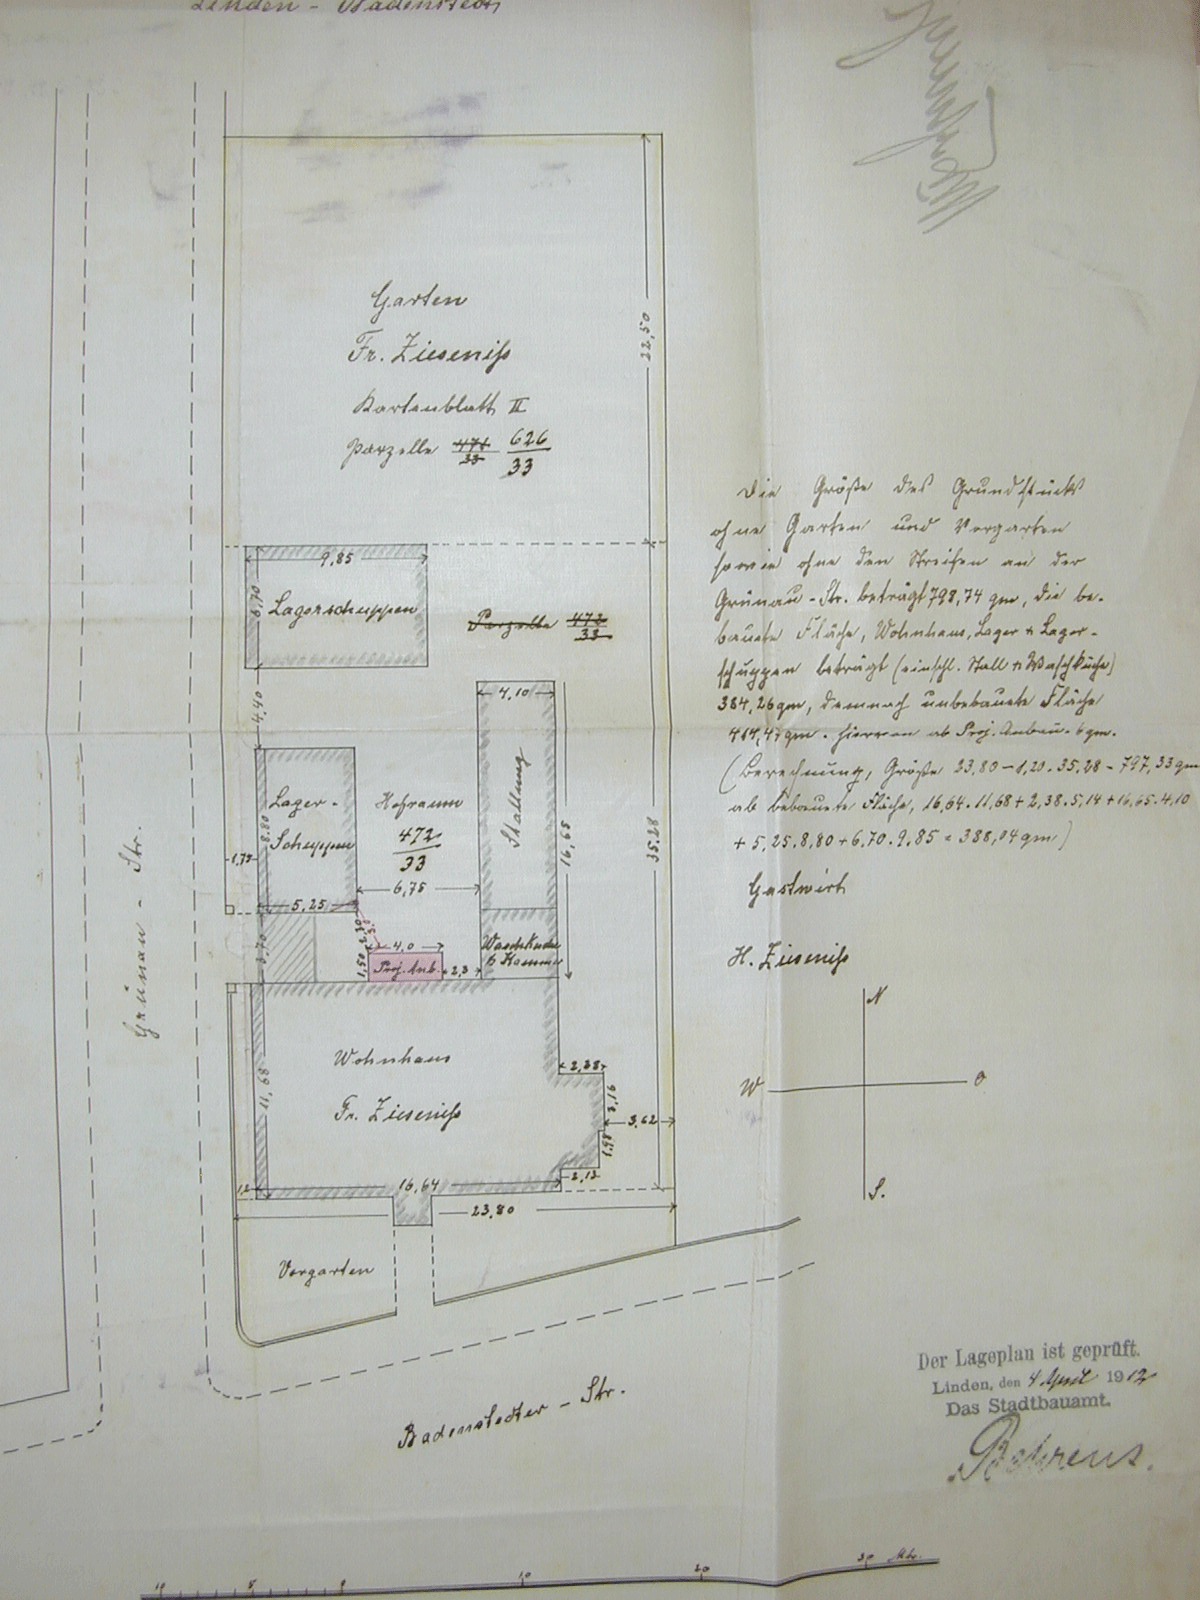 Linden - Badenstedt
Garten
Fr. Zieseniß
Kartenblatt II
Parzelle 471/33 626/33
22,50
9,85
6,70
Lagerschuppen
Parzelle 472/33
4,40
4,10
Stallung
16,65
35,28
Lager-
Schuppen
8,80
Hofraum
472/33
1,72
6,75
5,25
3,70
4,0
1,50
Proj. Anb.
2,3
Waschküche
Wohnhaus
Fr. Zieseniß
11,68
2,38
3,62
1,98
2,12
16,64
1,2
23,80
Vorgarten
Grünau - Str.
Badenstedter - Str.
Die Größe des Grundstücks
ohne Garten und Vorgarten
sowie ohne den Streifen an der
Grünau-Str. beträgt 798,74 qm, die be-
baute Fläche, Wohnhaus, Lager + Lager-
schuppen beträgt (einschl. Stall + Waschküche)
384,26 qm, demnach unbebaute Fläche
414,47 qm. Hiervon ab Proj. Anbau = 6 qm.
(Berechnung, Größe 23,80 - 1,20 . 35,28 = 797,33 qm
ab bebaute Fläche, 16,64 . 11,68 + 2,38 . 5,14 + 16,65 . 4,10
+ 5,25 . 8,80 + 6,70 . 9,85 = 388,04 qm)
Gastwirt
H. Zieseniß
N
W
O
S.
Der Lageplan ist geprüft.
Linden, den 4 April 1912
Das Stadtbauamt.
Behrens.
10
5
0
10
20
30 Mtr.